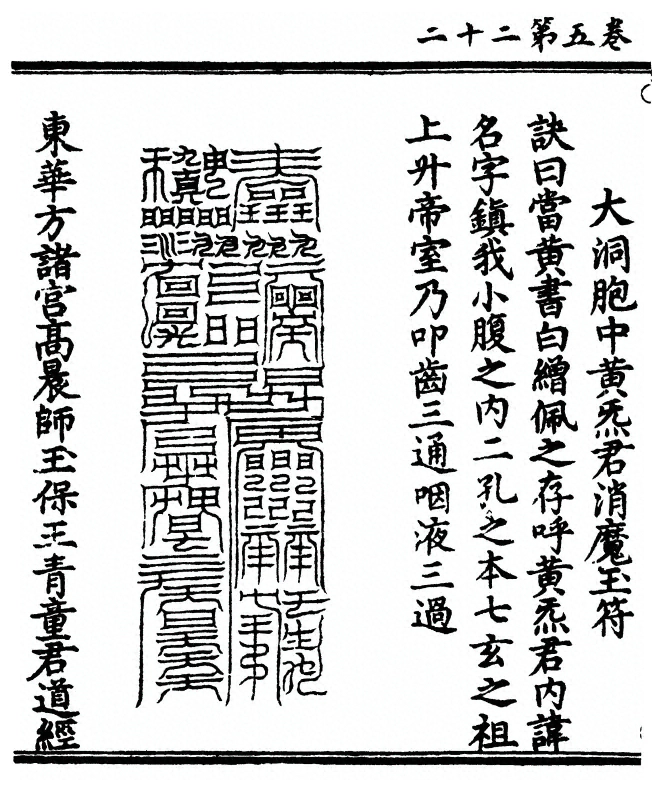 卷五第二十二
大洞胞中黄炁君消魔玉符
訣曰當黄書白繒佩之存呼黄炁君内諱
名字鎮我小腹之内二孔之本七玄之祖
上升帝室乃叩齒三通咽液三過
東華方諸宫高晨師玉保王青童君道經